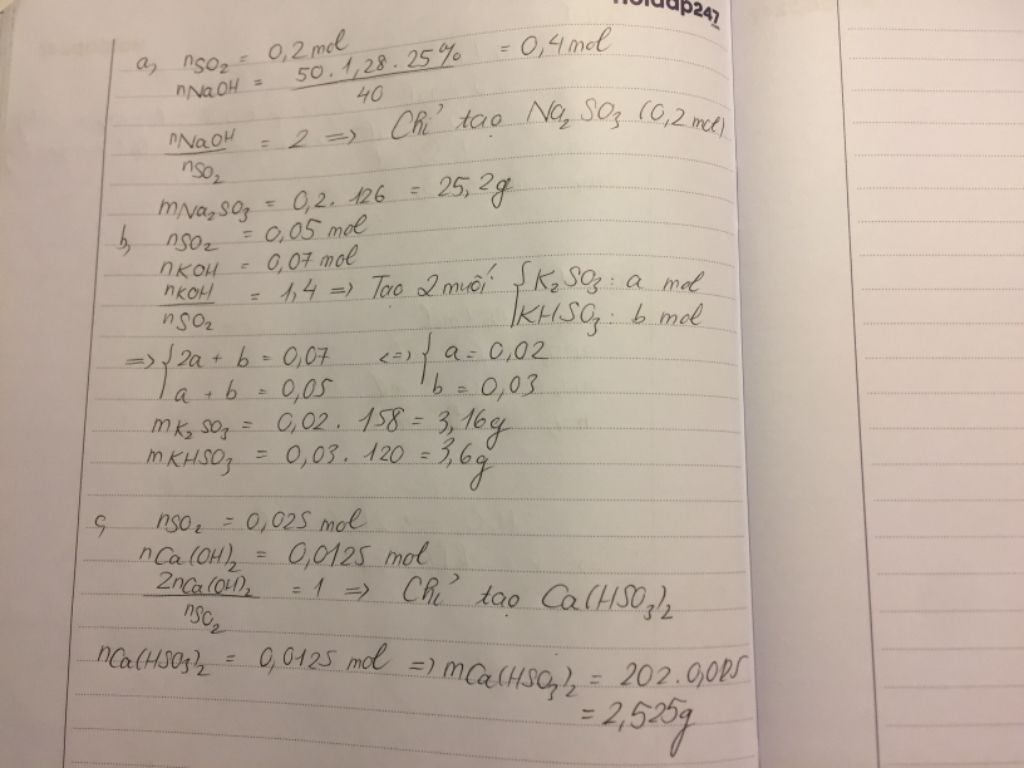 hoidap247
a, nSO₂ = 0,2 mol
nNaOH = 50.1,28.25% / 40 = 0,4 mol
nNaOH / nSO₂ = 2 => Chỉ tạo Na₂SO₃ (0,2 mol)
mNa₂SO₃ = 0,2. 126 = 25,2g
b, nSO₂ = 0,05 mol
nKOH = 0,07 mol
nKOH / nSO₂ = 1,4 => Tạo 2 muối { K₂SO₃: a mol
KHSO₃: b mol
=> { 2a + b = 0,07 <=> { a = 0,02
a + b = 0,05 b = 0,03
mK₂SO₃ = 0,02. 158 = 3,16g
mKHSO₃ = 0,03. 120 = 3,6g
c, nSO₂ = 0,025 mol
nCa(OH)₂ = 0,0125 mol
2nCa(OH)₂ / nSO₂ = 1 => Chỉ tạo Ca(HSO₃)₂
nCa(HSO₃)₂ = 0,0125 mol => mCa(HSO₃)₂ = 202.0,0125
= 2,525g